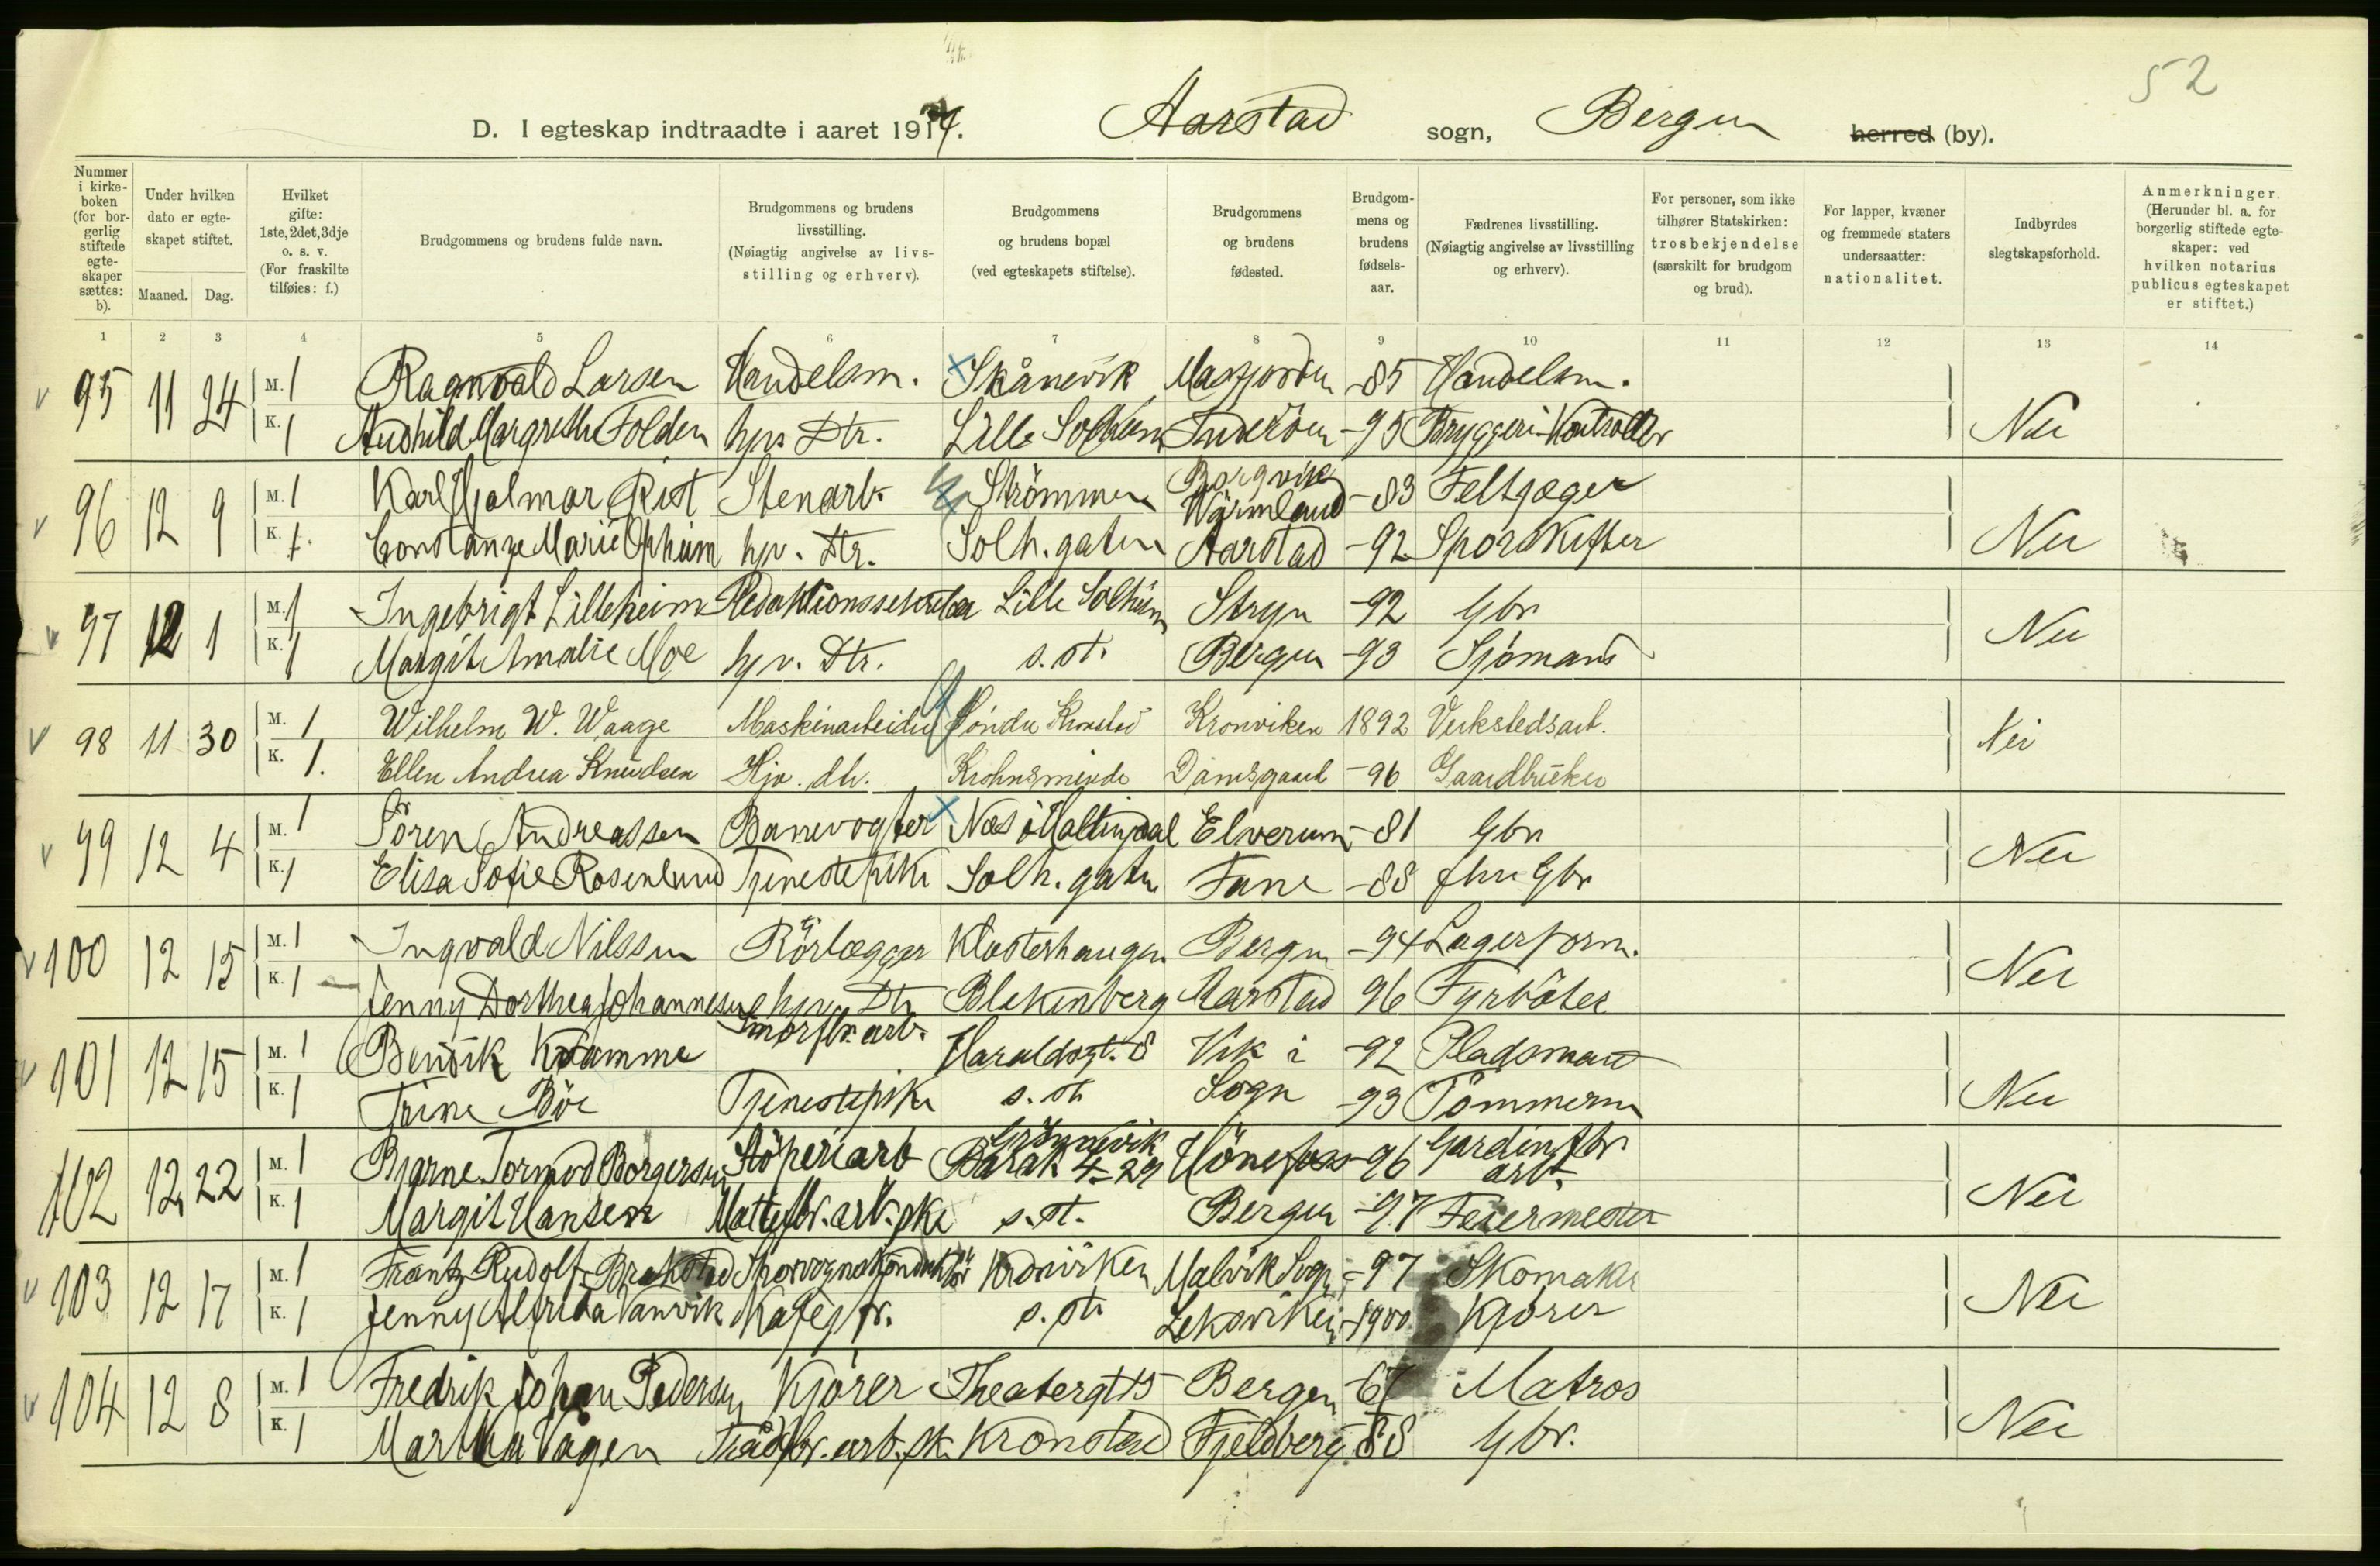 52
D. I egteskap indtraadte i aaret 191 . Aarstad sogn, Bergen herred (by).
Nummer i kirkeboken (for borgerlig stiftede egteskaper sættes: b).
Under hvilken dato er egteskapet stiftet.
Maaned. Dag.
Hvilket gifte: 1ste, 2det, 3dje o. s. v. (For fraskilte tilføies: f.)
Brudgommens og brudens fulde navn.
Brudgommens og brudens livsstilling. (Nøiagtig angivelse av livsstilling og erhverv).
Brudgommens og brudens bopæl (ved egteskapets stiftelse).
Brudgommens og brudens fødested.
Brudgommens og brudens fødselsaar.
Fædrenes livsstilling. (Nøiagtig angivelse av livsstilling og erhverv).
For personer, som ikke tilhører Statskirken: trosbekjendelse (særskilt for brudgom og brud).
For lapper, kvæner og fremmede staters undersaatter: nationalitet.
Indbyrdes slegtskapsforhold.
Anmerkninger. (Herunder bl. a. for borgerlig stiftede egteskaper: ved hvilken notarius publicus egteskapet er stiftet.)
1 2 3 4 5 6 7 8 9 10 11 12 13 14
95 11 24 M. 1 Ragnvald Larsen Handelsm. Skånevik Masfjorden -85 Handelsm.
K. 1 Audhild Margrethe Folden hjv. Dtr. Lille Solheim Inderöen -95 Bryggeri-Kontrollör Nei
96 12 9 M. 1 Karl Hjalmar Rist Stenarb. Strömmen Borgvik Wärmland -83 Feltjæger
K. 1. Constanze Marie Opheim hjv. Dtr. Solh. gaten Aarstad -92 Sporskifter Nei
97 12 1 M. 1 Ingebrigt Lilleheim Redaktionssekretær Lille Solheim Stryn -92 Gbr.
K. 1 Margit Amalie Moe hjv. Dtr. s. st. Bergen -93 Sjømand Nei
98 11 30 M. 1 Wilhelm W. Waage Maskinarbeider Søndre Kronstad Kronviken 1892 Verkstedsarb.
K. 1. Ellen Andrea Knudsen Hjv. dtr. Krohnsminde Damsgaard -96 Gaardbruker Nei
99 12 4 M. 1 Sören Andreassen Banevogter Nes i Hallingdal Elverum -81 Gbr.
K. 1 Elisa Sofie Rosenlund Tjenestepike Solh. gaten Fane -88 fhv Gbr. Nei
100 12 15 M. 1 Ingvald Nilssen Rörlægger Klosterhaugen Bergen -94 Lagerform.
K. 1 Jenny Dorthea Johannesen hjv. Dtr. Blekenberg Aarstad 96 Fyrböter Nei
101 12 15 M. 1 Bendik Kvamme Smörfbr. arb. Haraldsgt. 8 Vik i -92 Pladsmand
K. 1 Trine Böe Tjenestepike s. st. Sogn -93 Tömmerm Nei
102 12 22 M. 1 Bjarne Tormod Borgersen Stöperiarb Grönnevik Barak 4-29 Hönefoss -96 Gardinfbr. arb.
K. 1 Margit Hansen Mattefbr. arb. pke s. st. Bergen -97 Feiermester Nei
103 12 17 M. 1 Frantz Rudolf Brekstad Sporvognskonduktör Kronviken Malvik Sogn -97 Skomaker
K. 1 Jenny Alfrida Vanvik Kafejfr. s. st. Leksviken -1900 Kjörer Nei
104 12 8 M. 1 Fredrik Johan Pedersen Kjörer Theatergt 15 Bergen -67 Matros
K. 1 Martha Vågen Trådfbr. arb. pk. Kronstad Fjeldberg 88 Gbr. Nei